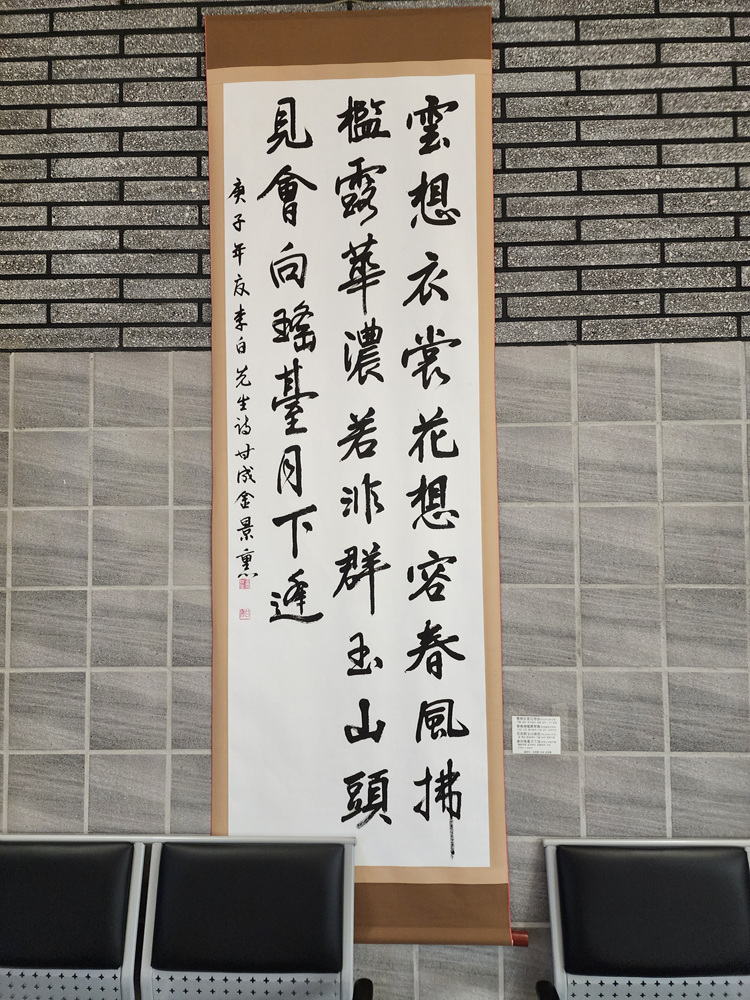 雲想衣裳花想容春風拂
檻露華濃若非群玉山頭
見會向瑤臺月下逢
庚子年李白先生詩甘成金景熏